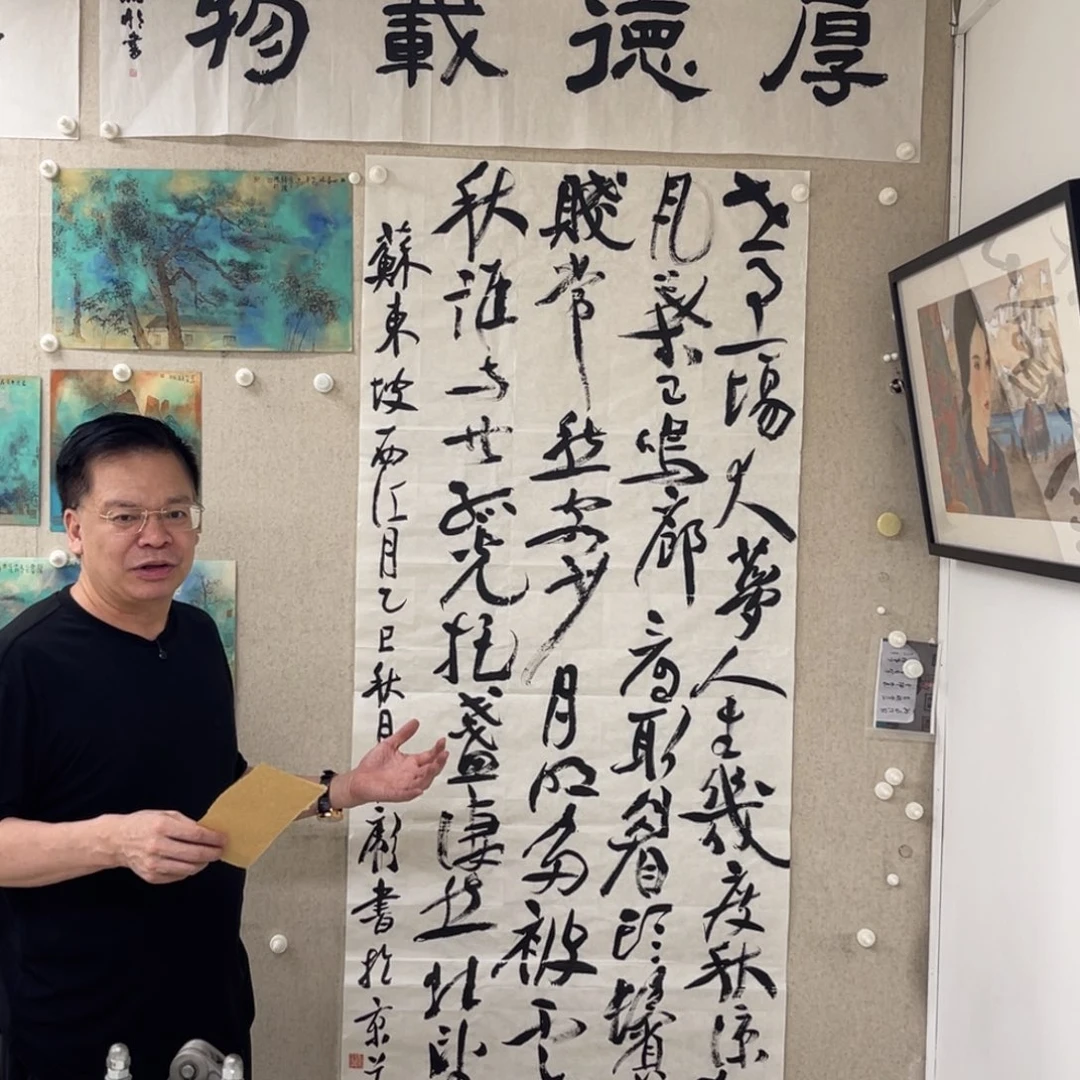 厚德載物
書
世事一場大夢人生幾度秋涼
風葉已鳴廊看取眉頭鬢
賤常愁客少月明多被雲
秋誰与共孤光把盞淒然北望
蘇東坡西江月乙巳秋月書於京